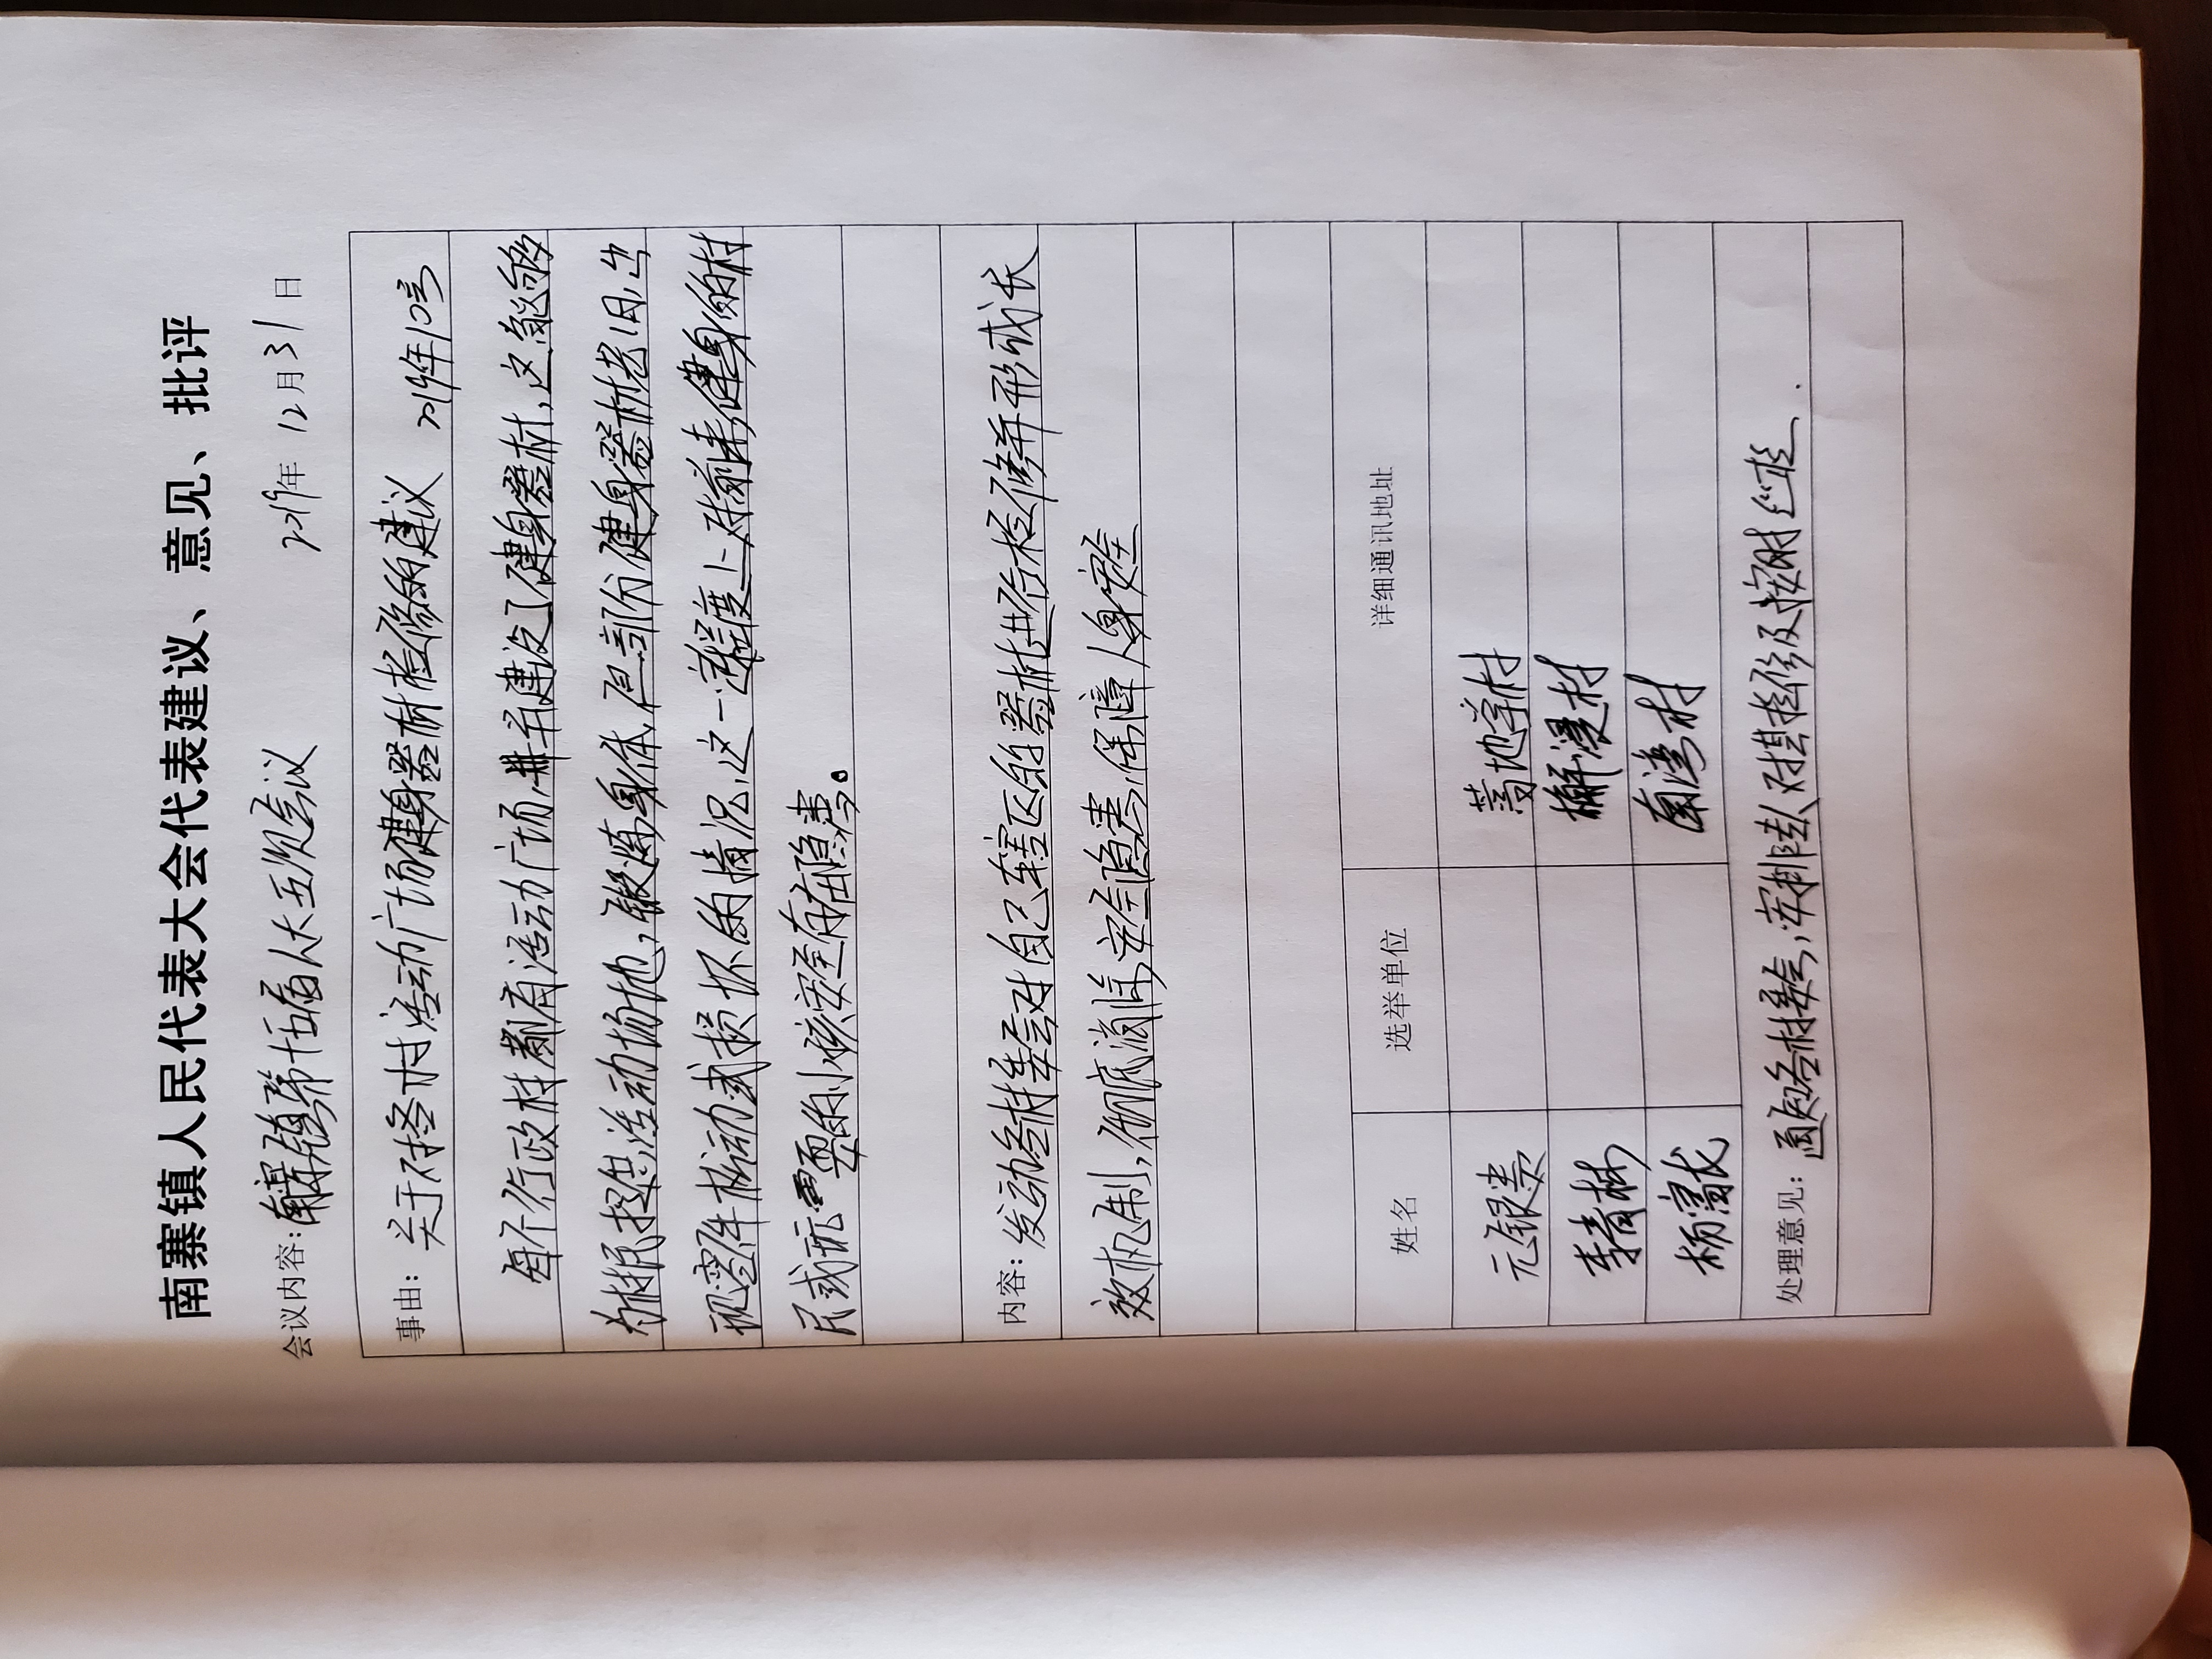 南寨镇人民代表大会代表建议、意见、批评
会议内容：南寨镇第十五届人大五次会议 2019年 12月31日
事由：关于对各村活动广场健身器材检修的建议 2019年10号
每个行政村都有活动广场，并并建设了健身器材，这能够
为村民提供活动场地，锻炼身体，但部分健身器材老旧，出
现零件松动或损坏的情况，这一程度上对前来健身的村
民或玩耍的小孩安全存在隐患。
内容：发动各村委会对自己辖区的器材进行检修并形成长
效机制，彻底消除安全隐患，保障人身安全
姓名 选举单位 详细通讯地址
元银贵
李青林
杨富龙 南湾村
处理意见：通知各村委会，安排专人对其检修及按时